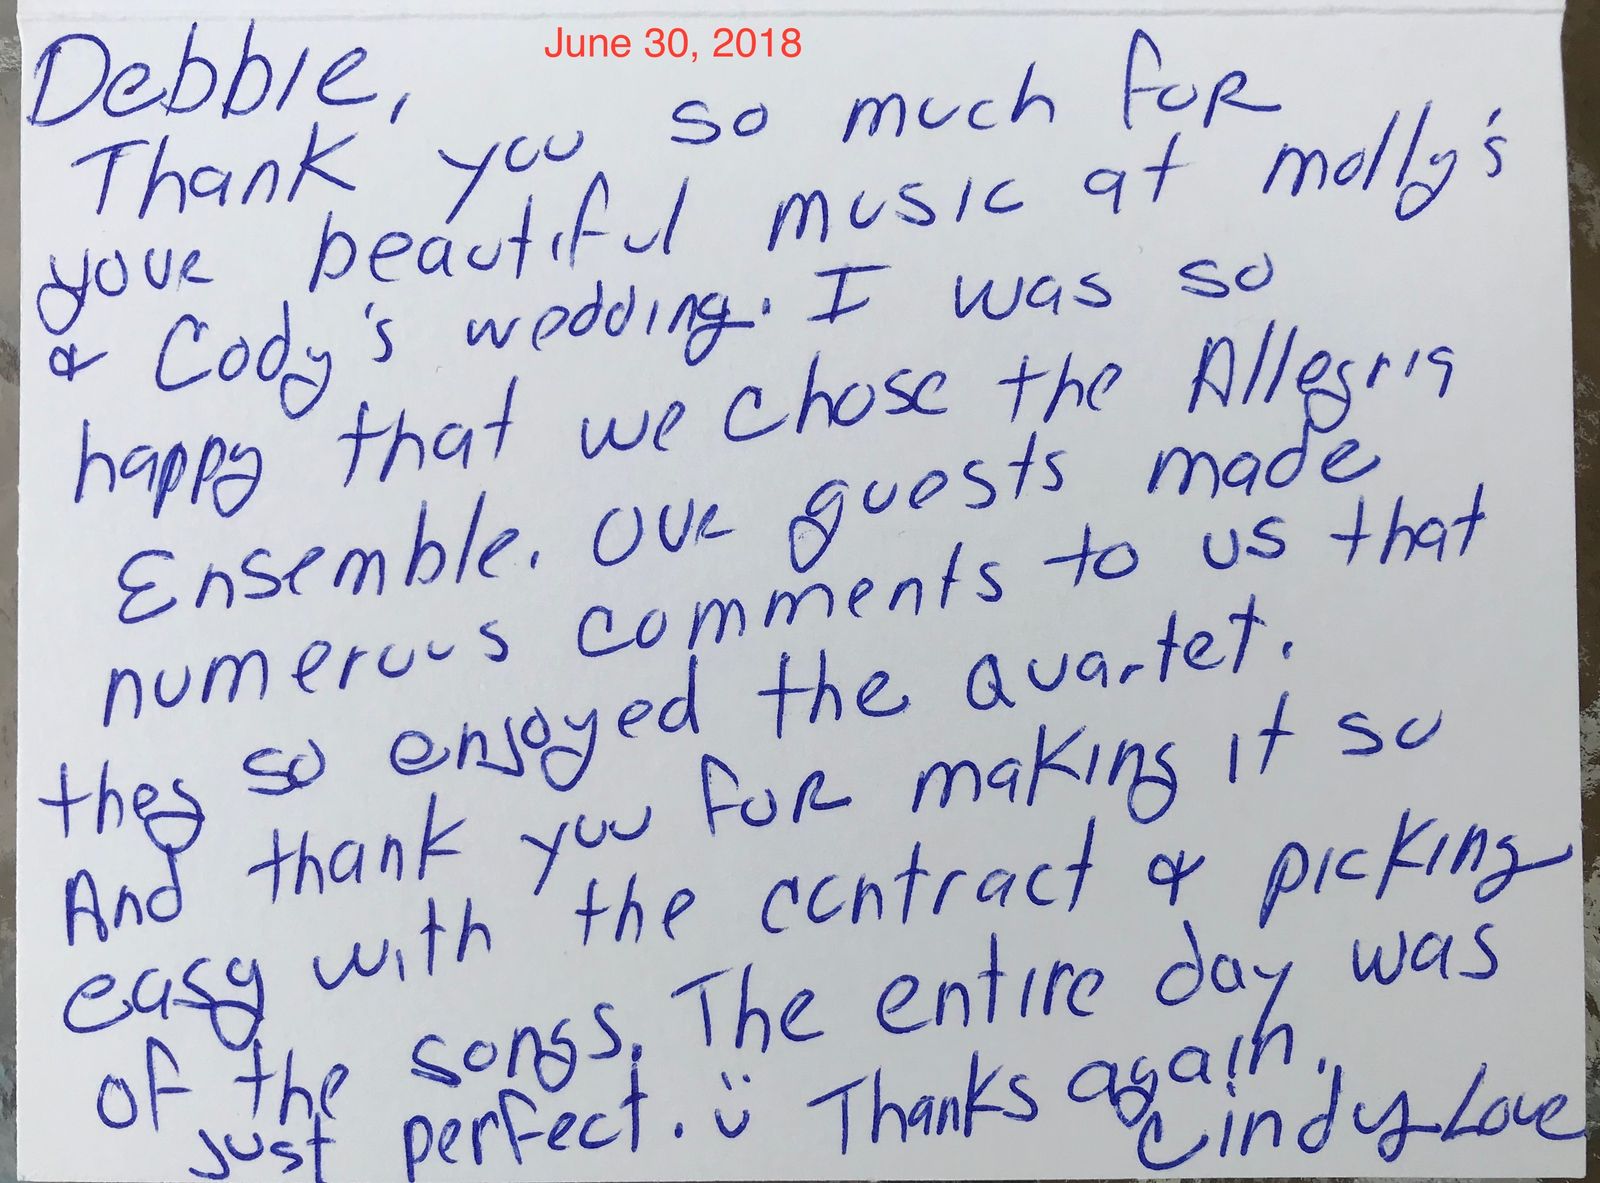 June 30, 2018
Debbie,
Thank you so much for
your beautiful music at Molly's
& Cody's wedding. I was so
happy that we chose the Allegria
Ensemble. Our guests made
numerous comments to us that
they so enjoyed the quartet.
And thank you for making it so
easy with the contract & picking
of the songs. The entire day was
just perfect. :) Thanks again.
Cindy Love